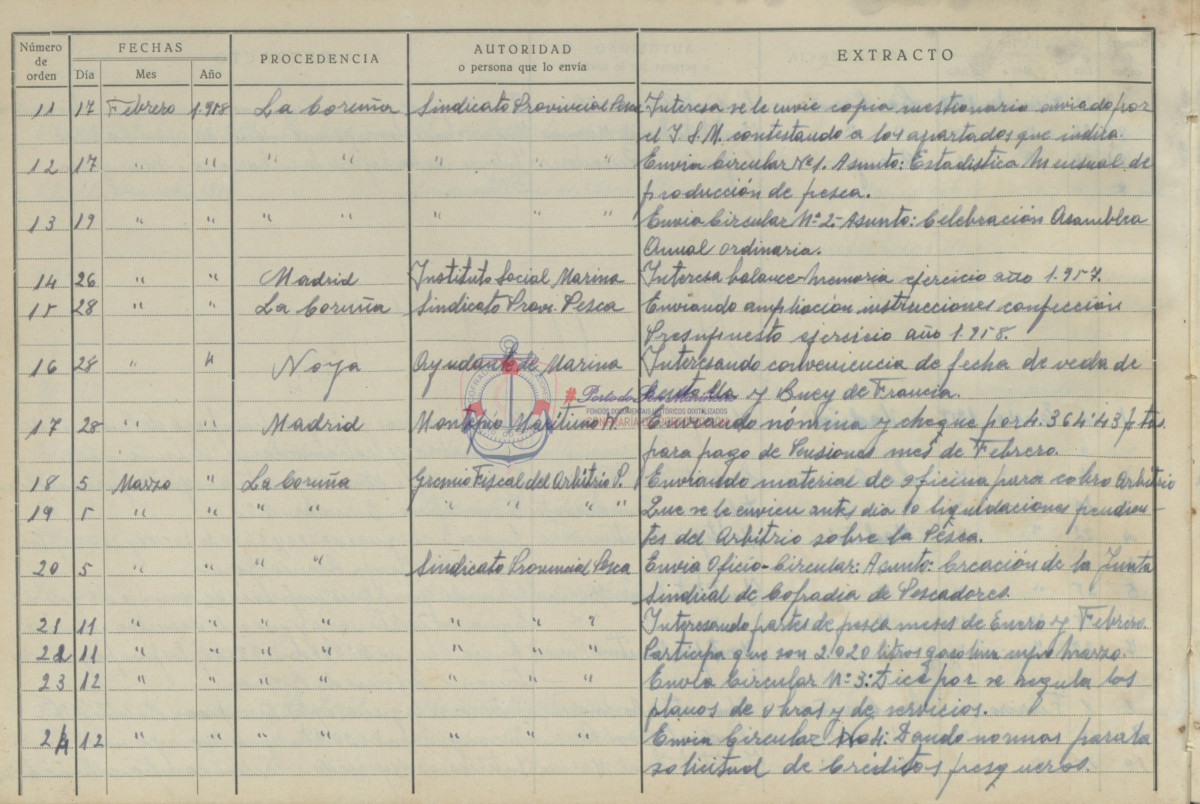 Número de orden FECHAS PROCEDENCIA AUTORIDAD o persona que lo envía EXTRACTO
Día Mes Año
11 17 Febrero 1.958 La Coruña Sindicato Provincial Pesca Interesa se le envie copia cuestionario enviado por
el I.S.M. contestando a los apartados que indica.
12 17 " " " " " " " Envia Circular Nº 1. Asunto: Estadistica Mensual de
producción de pesca.
13 19 " " " " " " " Envia Circular Nº 2.- Asunto: Celebración Asamblea
Anual ordinaria.
14 26 " " Madrid Instituto Social Marina Interesa balance-memoria ejercicio año 1.957.
15 28 " " La Coruña Sindicato Prov. Pesca Enviando ampliacion instrucciones confección
Presupuesto ejercicio año 1.958.
16 28 " " Noya Ayudante de Marina Interesando conveniencia de fecha de veda de
Centolla y Buey de Francia.
17 28 " " Madrid Montepio Maritimo N. Enviando nómina y cheque por 4.364'43 ptas.
para pago de Pensiones mes de Febrero.
18 5 Marzo " La Coruña Gremio Fiscal del Arbítrio P. Enviando material de oficina para cobro Arbítrio
19 5 " " " " " " " " Que se le envien antes dia 10 liquidaciones pendien-
tes del Arbítrio sobre la Pesca.
20 5 " " " " Sindicato Provincial Pesca Envia Oficio-Circular: Asunto: Creación de la Junta
Sindical de Cofradia de Pescadores.
21 11 " " " " " " " Interesando partes de pesca meses de Enero y Febrero.
22 11 " " " " " " " Participa que son 2.020 litros gasolina cupo Marzo.
23 12 " " " " " " " Envia Circular Nº 3: Dice por se regula los
planos de obras y de servicios.
24 12 " " " " " " " Envia Circular Nº 4: Dando normas para la
solicitud de Créditos pesqueros.
FONDOS DOCUMENTAIS HISTÓRICOS DIXITALIZADOS